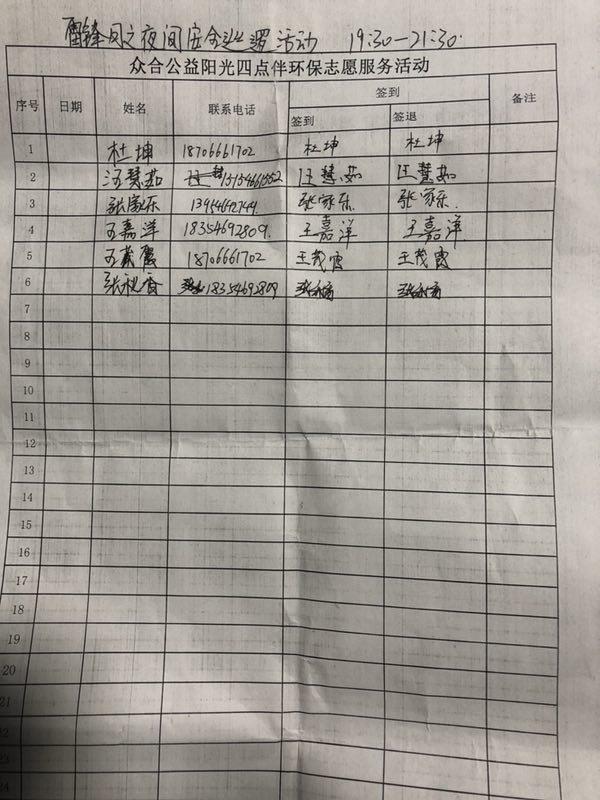 雷锋月之夜间安全巡逻活动 19:30—21:30
众合公益阳光四点伴环保志愿服务活动
序号 日期 姓名 联系电话 签到 备注
签到 签退
1 杜坤 18706661702 杜坤 杜坤
2 汪慧茹 汪慧茹 汪慧茹
3 张家乐 张家乐 张家乐
4 王嘉洋 18354692809 王嘉洋 王嘉洋
5 王茂霞 18706661702 王茂霞 王茂霞
6 张秋香 18354692809
7
8
9
10
11
12
13
14
15
16
17
18
19
20
21